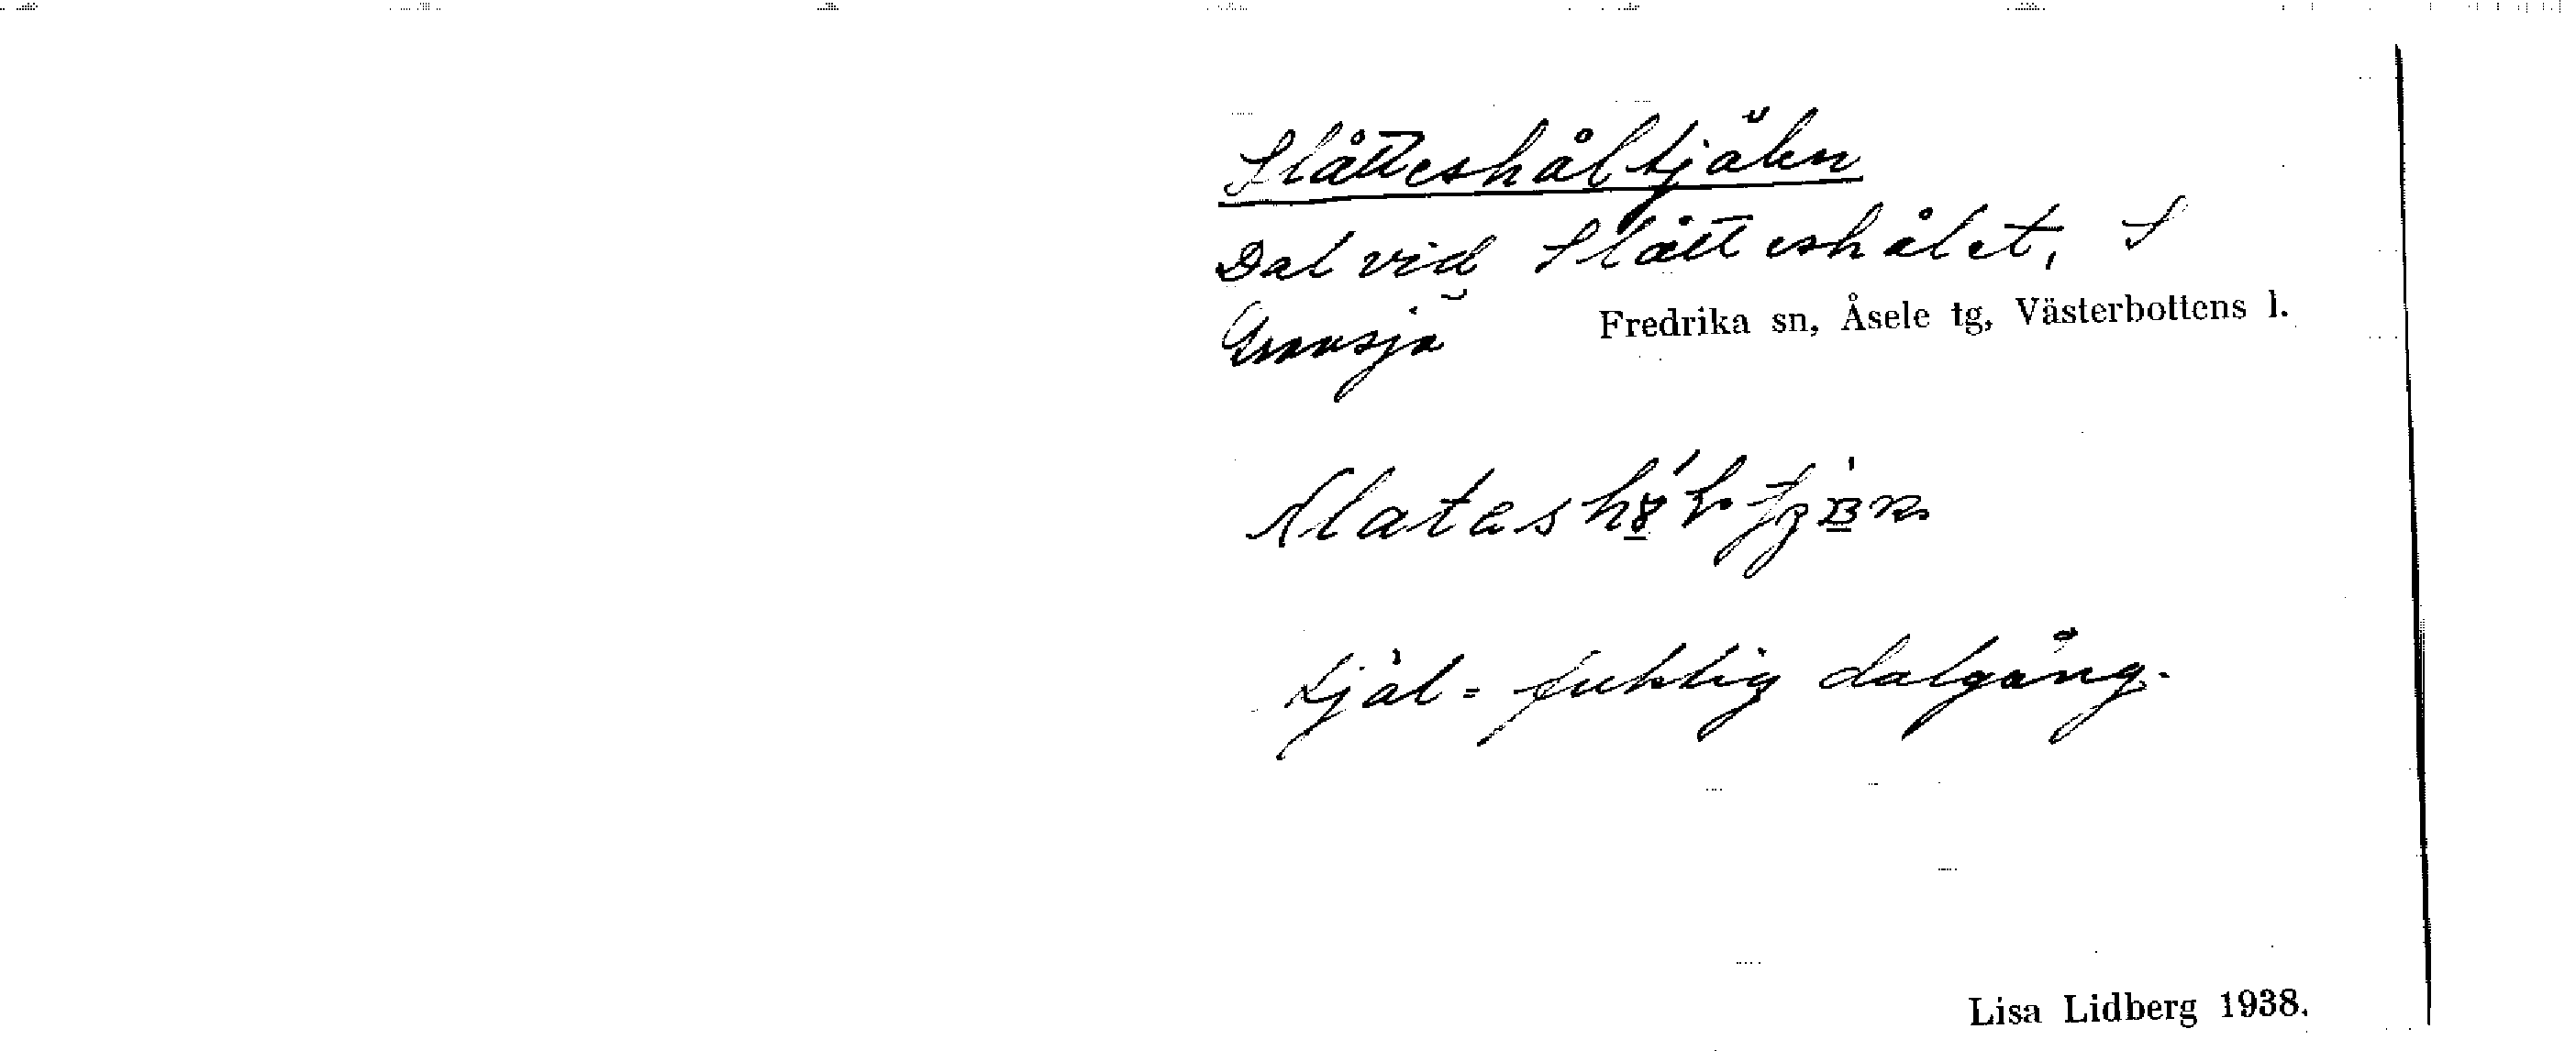 Slåtteshåltjälen
Dal vid Slåtteshålet, S
Gransjö Fredrika sn, Åsele tg, Västerbottens l.
tjäl = fuktig dalgång.
Lisa Lidberg 1938.